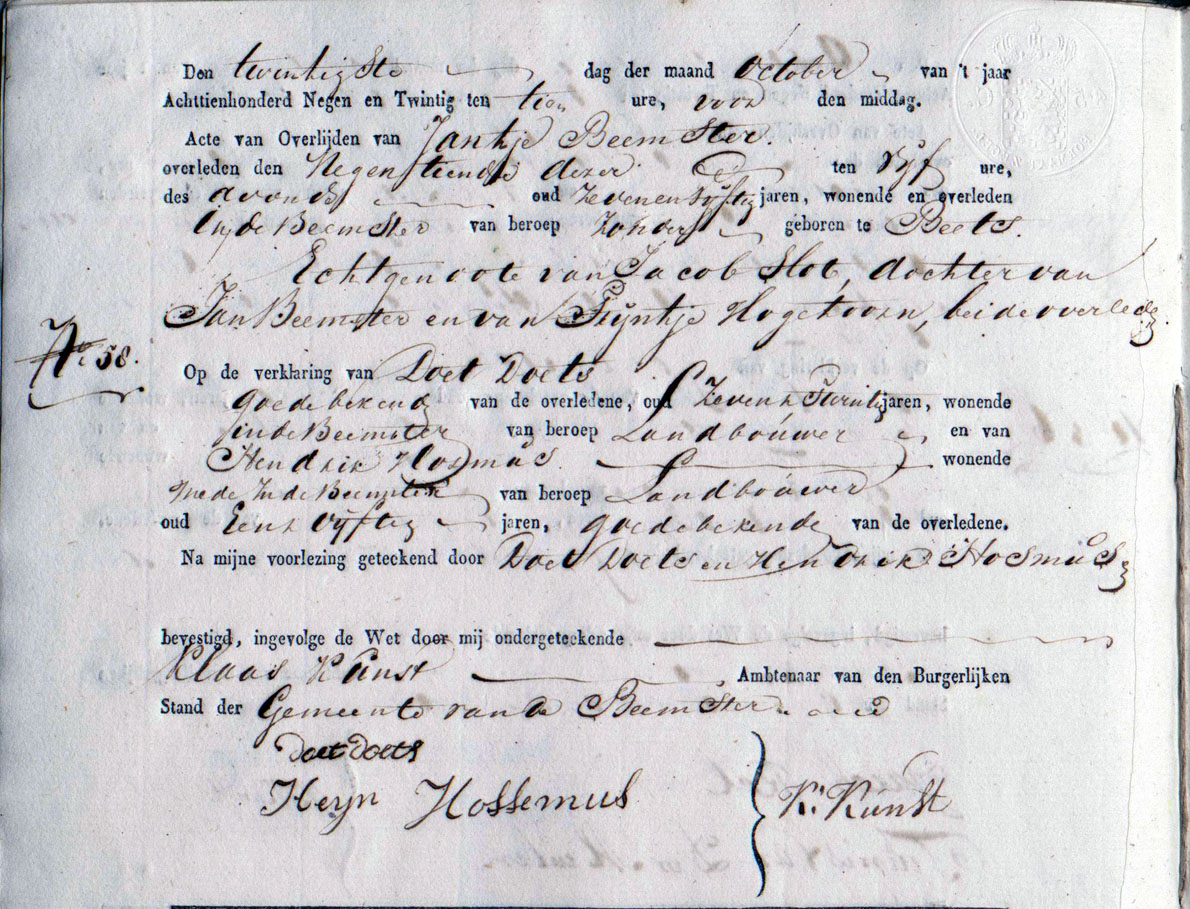 Den twintigste dag der maand October van 't jaar
Achttienhonderd Negen en Twintig ten tien ure, voor den middag.
Acte van Overlijden van Jantje Beemster.
overleden den Negentiende dezer ten vijf ure,
des avonds oud Zevenenvijftig jaren, wonende en overleden
in de Beemster van beroep Zonder geboren te Beets.
Echtgenoote van Jacob Slot, dochter van
Jan Beemster en van Trijntje Hogetoorn, beide overleden
No 58.
Op de verklaring van Doet Doets
goede bekende van de overledene, oud Zeven & jaren, wonende
in de Beemster van beroep Landbouwer en van
Hendrik Hosmus wonende
mede In de Beemster van beroep Landbouwer
oud Een & vijftig jaren, goede bekende van de overledene.
Na mijne voorlezing geteekend door Doet Doets en Hendrik Hosmus
bevestigd, ingevolge de Wet door mij ondergeteekende
Klaas Kunst Ambtenaar van den Burgerlijken
Stand der Gemeente van de Beemster
Doet Doets
Heyn Hossemus K. Kunst